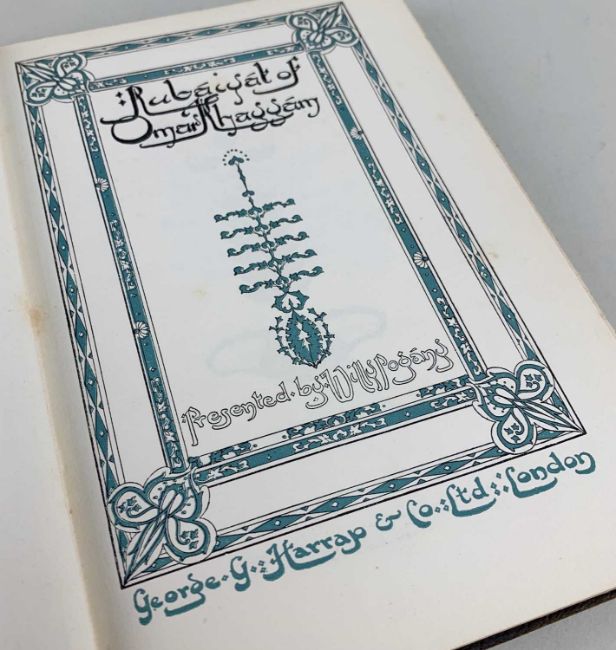 Rubáiyát of
Omar Khayyám
Presented by Willy Pogány
George G. Harrap & Co. Ltd. London